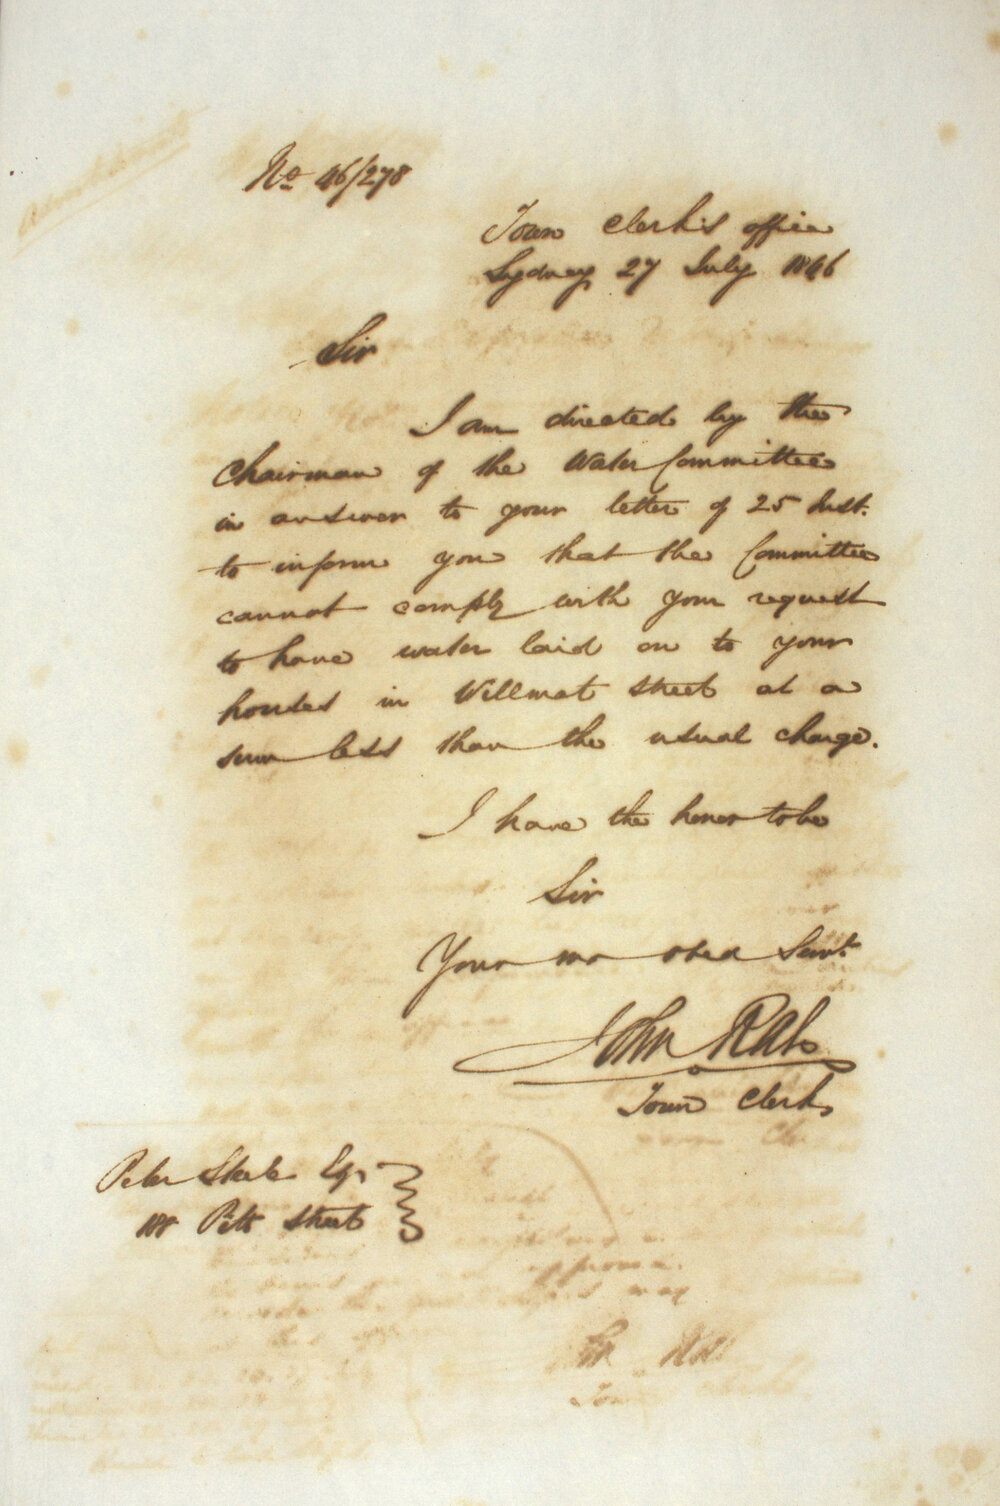 No 46/278
Town Clerk's office
Sydney 27 July 1846
Sir
I am directed by the
Chairman of the Water Committee
in answer to your letter of 25 Inst.
to inform you that the Committee
cannot comply with your request
to have water laid on to your
houses in Willmot Street at a
sum less than the usual charge.
I have the honor to be
Sir
Your mo obed Servt
John Rae
Town Clerk
Peter Steele Esqr
188 Pitt Street